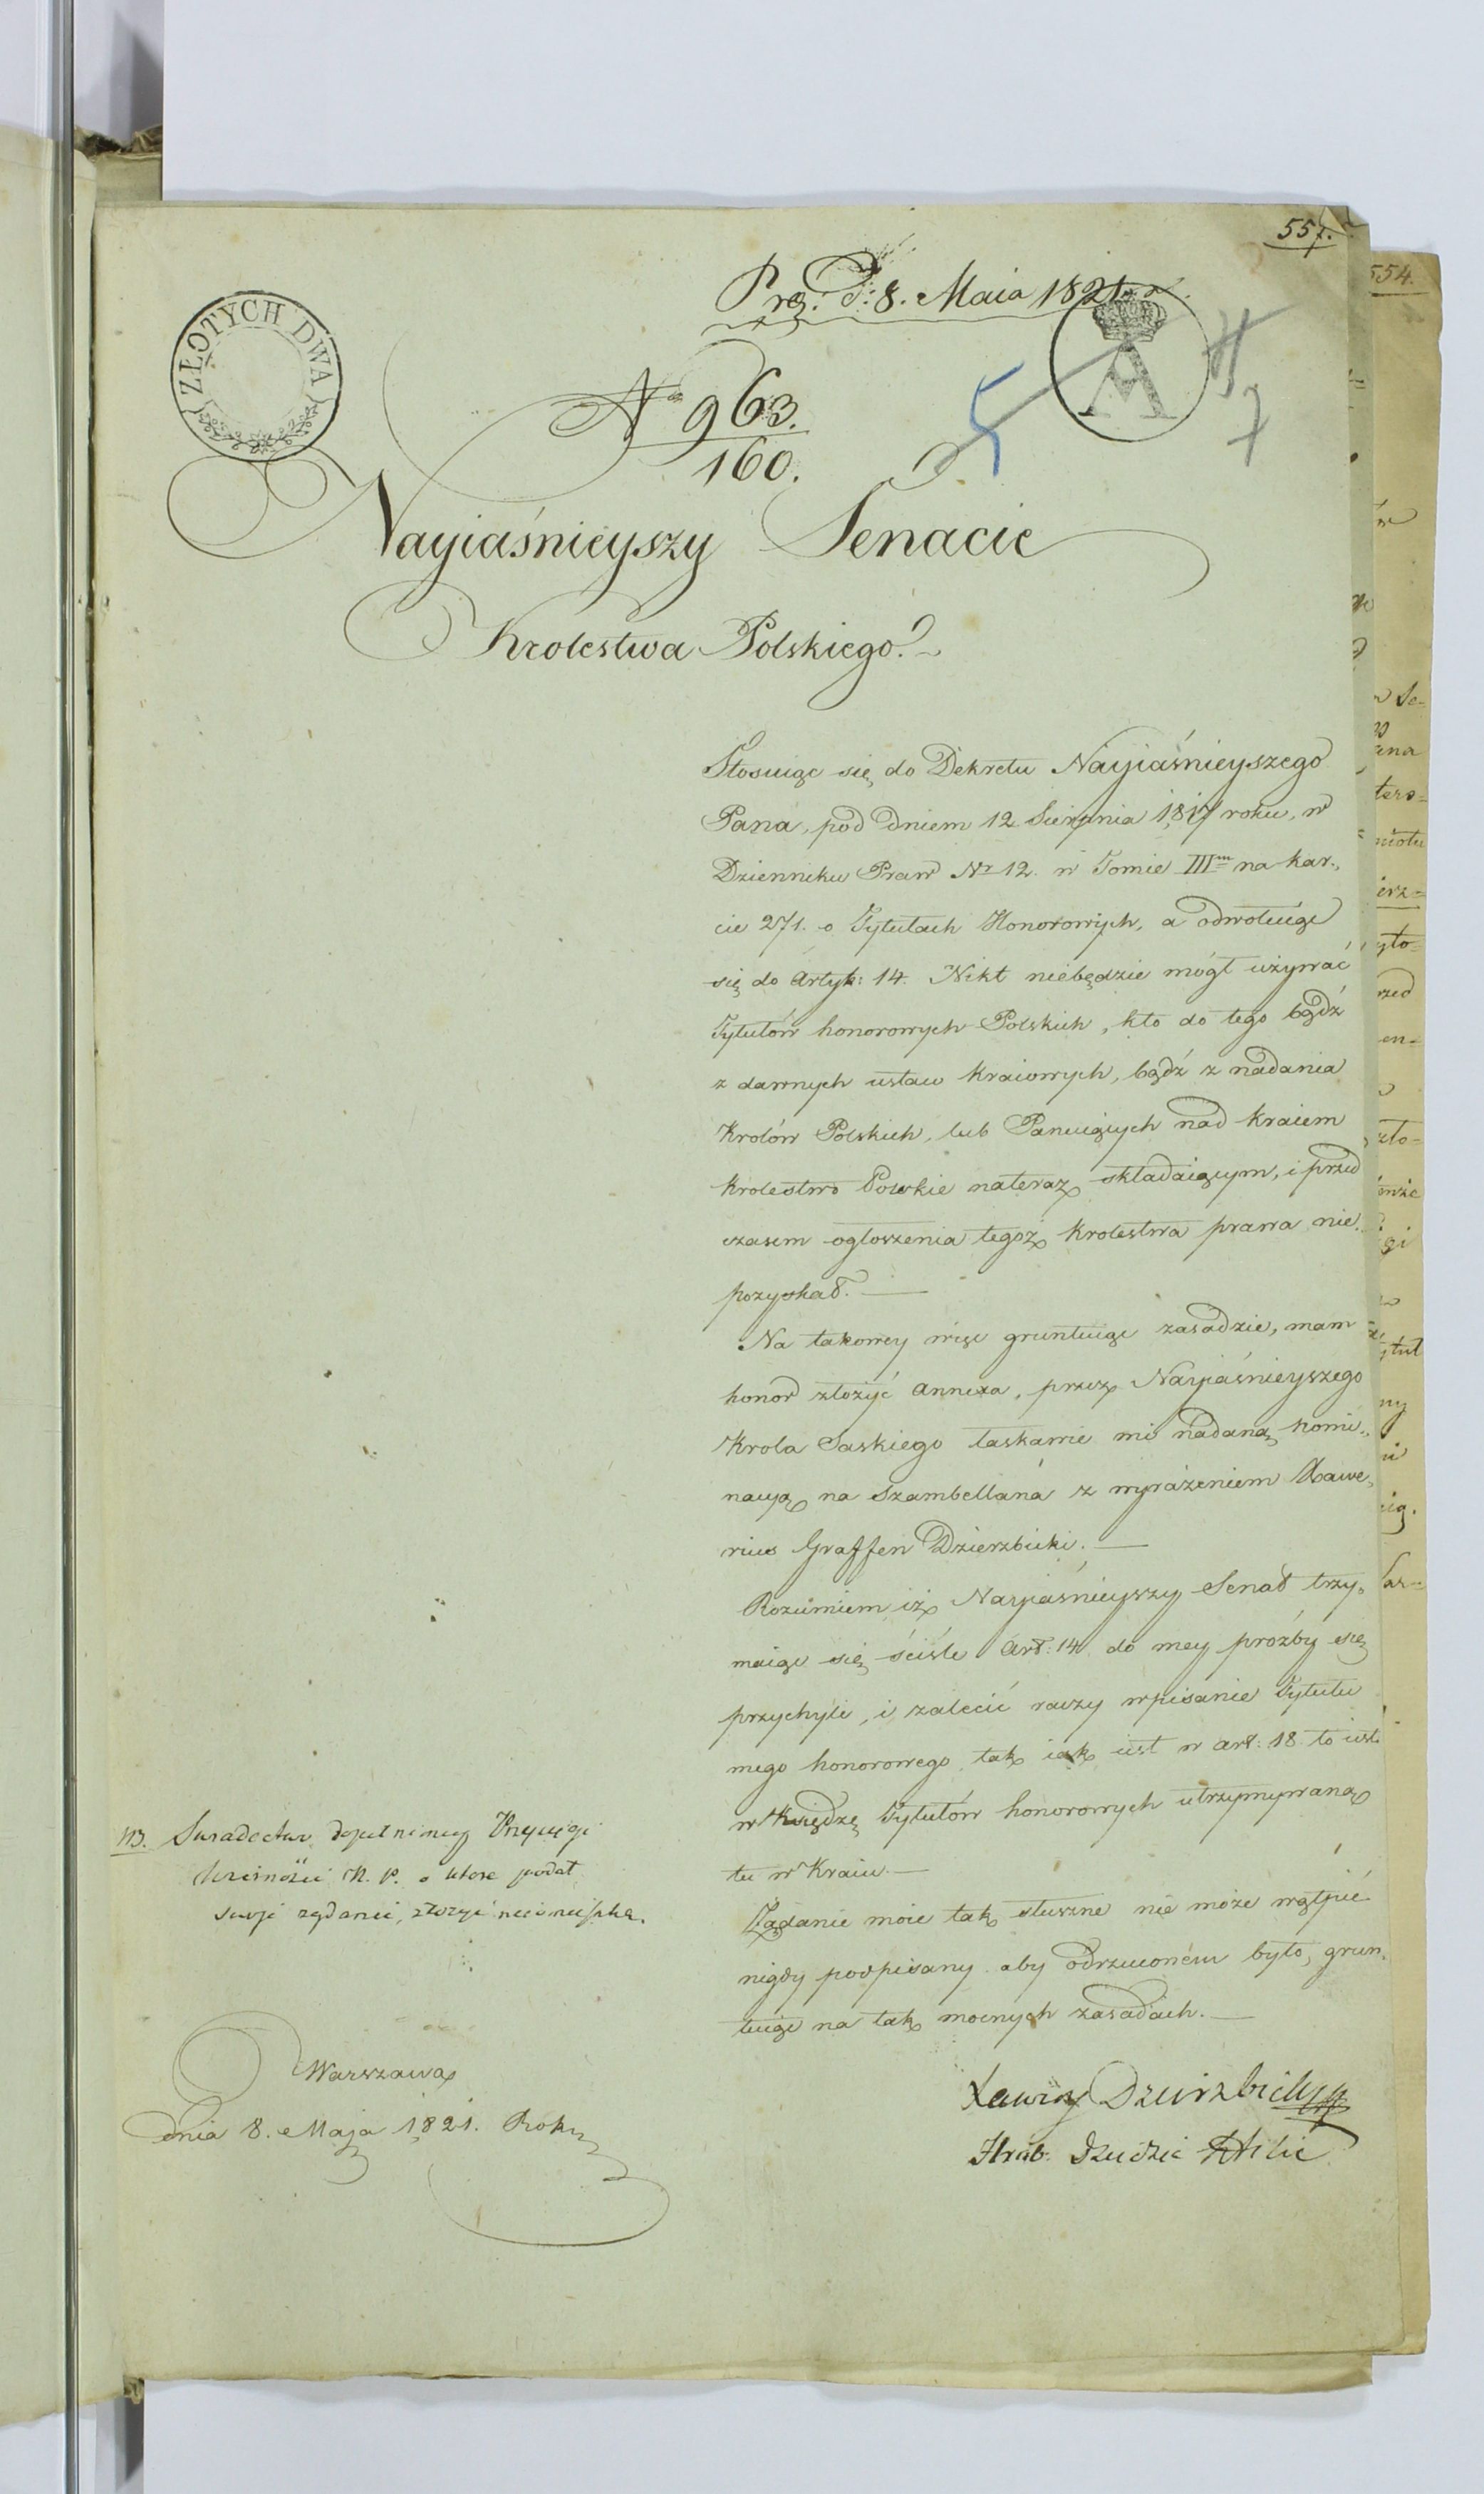 557.
554.
Prez. d: 8. Maia 1821. r.
ZŁOTYCH DWA
A
No 963.
160.
5
7
Nayiaśnieyszy Senacie
Krolestwa Polskiego.
Stosuiąc się do Dekretu Nayiaśnieyszego
Pana, pod dniem 12 Sierpnia 1817 roku, w
Dzienniku Praw Nr 12. w Tomie IIIm na kar-
cie 271. o Tytułach Honorowych, a odwołuiąc
się do Artyk: 14. Nikt niebędzie mógł używać
Tytułów honorowych Polskich, kto do tego bądź
z dawnych ustaw kraiowych, bądź z nadania
Królów Polskich, lub Panuiących nad kraiem
Krolestwo Polskie nateraz składaiącym, i przed
czasem ogłoszenia tegoż Krolestwa prawa nie
pozyskał.
Na takowey więc gruntuiąc zasadzie, mam
honor złożyć Annexa, przez Nayiaśnieyszego
Krola Saskiego łaskawie mi nadaną nomi-
nacyą na Szambellana z wyrażeniem Xawe-
rius Graffen Dzierzbicki.
Rozumiem iż Nayiaśnieyszy Senat trzy-
maiąc się ściśle Art: 14 do mey proźby się
przychyli, i zalecić raczy wpisanie Tytułu
mego honorowego, tak iak iest w art: 18 to iest
w Księdzę Tytułów honorowych utrzymywaną
tu w Kraiu.
Żądanie moie tak słuszne nie może wątpić
nigdy podpisany aby odrzuconem było, grun-
tuiąc na tak mocnych zasadach.
Xawery Dzierzbicki
Hrab: Dziedzic
NB. Swiadectwo dopełnioney Przysięgi
Wierności N. P. o które podał
swoje rządanie, złożyć nieomieszka.
Warszawa
dnia 8. Maja 1821. Roku